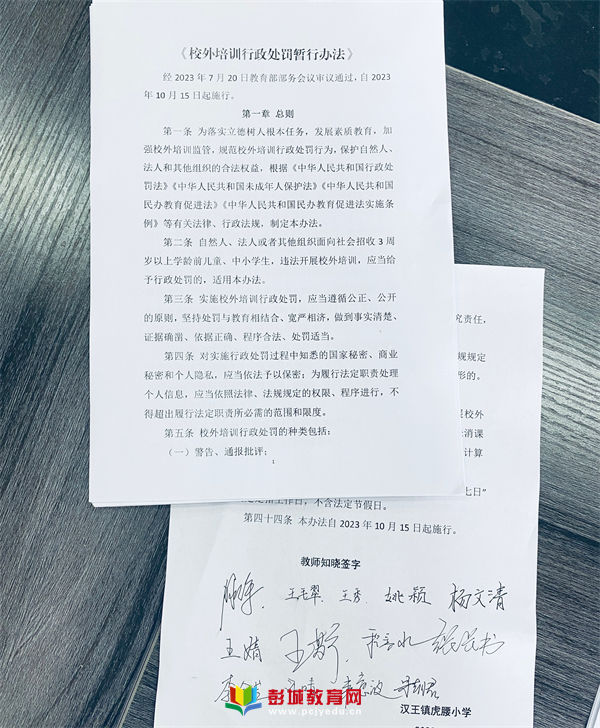 《校外培训行政处罚暂行办法》
经 2023 年 7 月 20 日教育部部务会议审议通过，自 2023
年 10 月 15 日起施行。
第一章 总则
第一条 为落实立德树人根本任务，发展素质教育，加
强校外培训监管，规范校外培训行政处罚行为，保护自然人、
法人和其他组织的合法权益，根据《中华人民共和国行政处
罚法》《中华人民共和国未成年人保护法》《中华人民共和国
民办教育促进法》《中华人民共和国民办教育促进法实施条
例》等有关法律、行政法规，制定本办法。
第二条 自然人、法人或者其他组织面向社会招收 3 周
岁以上学龄前儿童、中小学生，违法开展校外培训，应当给
予行政处罚的，适用本办法。
第三条 实施校外培训行政处罚，应当遵循公正、公开
的原则，坚持处罚与教育相结合、宽严相济，做到事实清楚、
证据确凿、依据正确、程序合法、处罚适当。
第四条 对实施行政处罚过程中知悉的国家秘密、商业
秘密和个人隐私，应当依法予以保密；为履行法定职责处理
个人信息，应当依照法律、法规规定的权限、程序进行，不
得超出履行法定职责所必需的范围和限度。
第五条 校外培训行政处罚的种类包括：
（一）警告、通报批评；
1
究责任，
规规定
形的。
校外
消课
计算
七日”
工作日，不含法定节假日。
第四十四条 本办法自 2023 年 10 月 15 日起施行。
教师知晓签字
王秀 姚颖 杨文清
王婧
汉王镇虎腰小学
彭城教育网
www.pcjyedu.cn